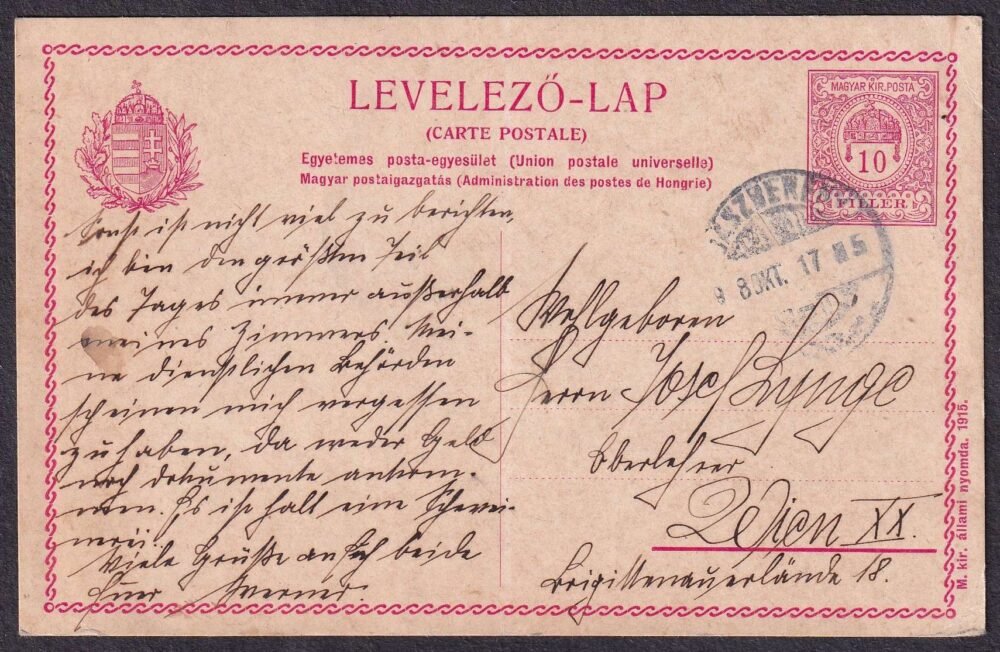 LEVELEZŐ-LAP
(CARTE POSTALE)
Egyetemes posta-egyesület (Union postale universelle)
Magyar postaigazgatás (Administration des postes de Hongrie)
MAGYAR KIR. POSTA
10
FILLÉR
8 OKT. 17 N 5
Sonst ist nicht viel zu berichten,
ich bin den größten Teil
des Tages immer außerhalb
meines Zimmers. Mei-
ne dienstlichen Behörden
scheinen mich vergessen
zu haben, da weder Geld
noch Dokumente ankom-
men. Es ist halt eine Schwei-
nerei.
Viele Grüße an Euch beide
Euer Werner.
Wohlgeboren
Herrn Josef
Oberlehrer
Wien XX.
Brigittenauerlände 18.
M. kir. állami nyomda. 1915.